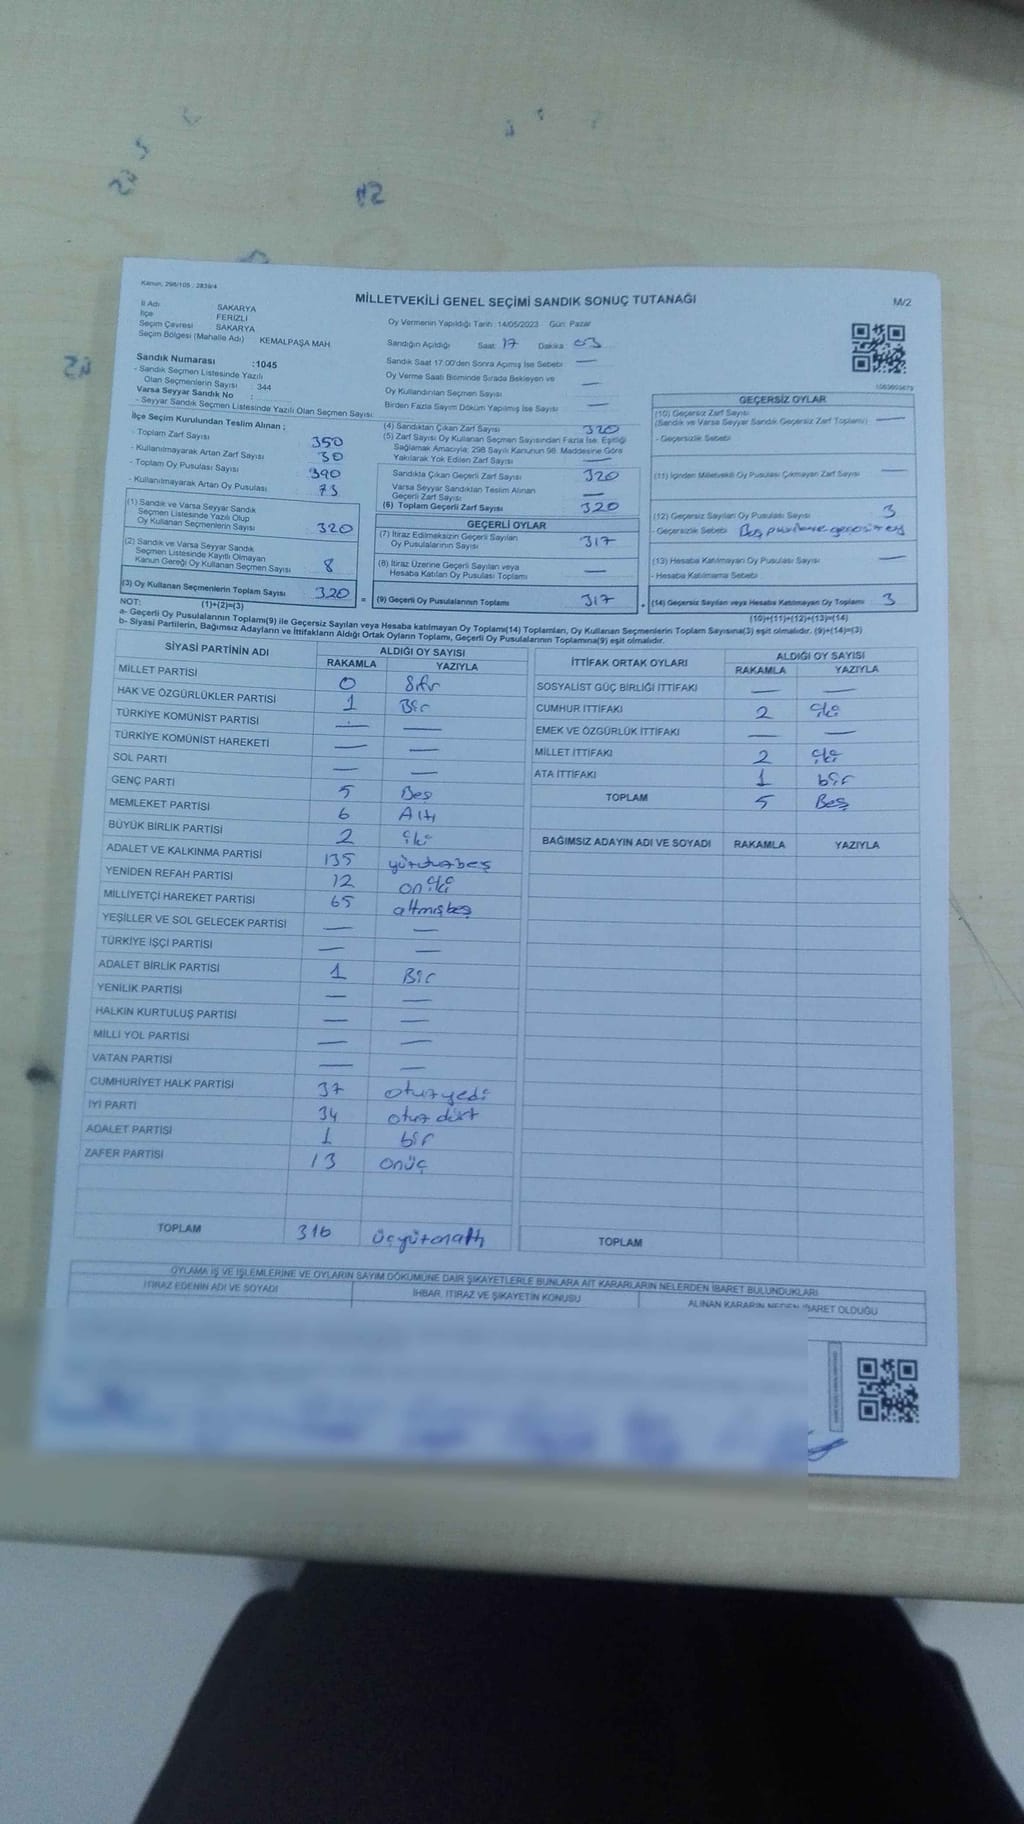 Kanun, 298/105 : 2839/4
MİLLETVEKİLİ GENEL SEÇİMİ SANDIK SONUÇ TUTANAĞI
M/2
İl Adı SAKARYA
İlçe FERİZLİ
Seçim Çevresi SAKARYA
Seçim Bölgesi (Mahalle Adı) KEMALPAŞA MAH.
Sandık Numarası :1045
- Sandık Seçmen Listesinde Yazılı
Olan Seçmenlerin Sayısı : 344
Varsa Seyyar Sandık No :
- Seyyar Sandık Seçmen Listesinde Yazılı Olan Seçmen Sayısı:
Oy Vermenin Yapıldığı Tarih :14/05/2023 Gün: Pazar
Sandığın Açıldığı Saat: 17 Dakika: 03
Sandık Saat 17:00'den Sonra Açılmış İse Sebebi —
Oy Verme Saati Bitiminde Sırada Bekleyen ve
Oy Kullandırılan Seçmen Sayısı —
Birden Fazla Sayım Döküm Yapılmış İse Sayısı —
İlçe Seçim Kurulundan Teslim Alınan ;
- Toplam Zarf Sayısı 350
- Kullanılmayarak Artan Zarf Sayısı 30
- Toplam Oy Pusulası Sayısı 390
- Kullanılmayarak Artan Oy Pusulası 73
(1) Sandık ve Varsa Seyyar Sandık
Seçmen Listesinde Yazılı Olup
Oy Kullanan Seçmenlerin Sayısı 320
(2) Sandık ve Varsa Seyyar Sandık
Seçmen Listesinde Kayıtlı Olmayan
Kanun Gereği Oy Kullanan Seçmen Sayısı 8
(3) Oy Kullanan Seçmenlerin Toplam Sayısı 320
(4) Sandıktan Çıkan Zarf Sayısı 320
(5) Zarf Sayısı Oy Kullanan Seçmen Sayısından Fazla İse, Eşitliği
Sağlamak Amacıyla, 298 Sayılı Kanunun 98. Maddesine Göre
Yakılarak Yok Edilen Zarf Sayısı —
Sandıkta Çıkan Geçerli Zarf Sayısı 320
Varsa Seyyar Sandıktan Teslim Alınan
Geçerli Zarf Sayısı —
(6) Toplam Geçerli Zarf Sayısı 320
GEÇERLİ OYLAR
(7) İtiraz Edilmeksizin Geçerli Sayılan
Oy Pusulalarının Sayısı 317
(8) İtiraz Üzerine Geçerli Sayılan veya
Hesaba Katılan Oy Pusulası Toplamı —
= (9) Geçerli Oy Pusulalarının Toplamı 317
GEÇERSİZ OYLAR
(10) Geçersiz Zarf Sayısı
(Sandık ve Varsa Seyyar Sandık Geçersiz Zarf Toplamı) —
- Geçersizlik Sebebi
(11) İçinden Milletvekili Oy Pusulası Çıkmayan Zarf Sayısı —
(12) Geçersiz Sayılan Oy Pusulası Sayısı 3
- Geçersizlik Sebebi
(13) Hesaba Katılmayan Oy Pusulası Sayısı —
- Hesaba Katılmama Sebebi
+ (14) Geçersiz Sayılan veya Hesaba Katılmayan Oy Toplamı 3
NOT: (1)+(2)=(3)
(10)+(11)+(12)+(13)=(14)
a- Geçerli Oy Pusulalarının Toplamı(9) ile Geçersiz Sayılan veya Hesaba katılmayan Oy Toplamı(14) Toplamları, Oy Kullanan Seçmenlerin Toplam Sayısına(3) eşit olmalıdır. (9)+(14)=(3)
b- Siyasi Partilerin, Bağımsız Adayların ve İttifakların Aldığı Ortak Oyların Toplamı, Geçerli Oy Pusulalarının Toplamına(9) eşit olmalıdır.
SİYASİ PARTİNİN ADI ALDIĞI OY SAYISI
RAKAMLA YAZIYLA
MİLLET PARTİSİ 0 Sıfır
HAK VE ÖZGÜRLÜKLER PARTİSİ 1 Bir
TÜRKİYE KOMÜNİST PARTİSİ — —
TÜRKİYE KOMÜNİST HAREKETİ — —
SOL PARTİ — —
GENÇ PARTİ 5 Beş
MEMLEKET PARTİSİ 6 Altı
BÜYÜK BİRLİK PARTİSİ 2 iki
ADALET VE KALKINMA PARTİSİ 135 yüzotuzbeş
YENİDEN REFAH PARTİSİ 12 oniki
MİLLİYETÇİ HAREKET PARTİSİ 65 altmışbeş
YEŞİLLER VE SOL GELECEK PARTİSİ — —
TÜRKİYE İŞÇİ PARTİSİ — —
ADALET BİRLİK PARTİSİ 1 Bir
YENİLİK PARTİSİ — —
HALKIN KURTULUŞ PARTİSİ — —
MİLLİ YOL PARTİSİ — —
VATAN PARTİSİ — —
CUMHURİYET HALK PARTİSİ 37 otuzyedi
İYİ PARTİ 34 otuz dört
ADALET PARTİSİ 1 bir
ZAFER PARTİSİ 13 onüç
TOPLAM 316 üçyüzonaltı
İTTİFAK ORTAK OYLARI ALDIĞI OY SAYISI
RAKAMLA YAZIYLA
SOSYALİST GÜÇ BİRLİĞİ İTTİFAKI — —
CUMHUR İTTİFAKI 2 iki
EMEK VE ÖZGÜRLÜK İTTİFAKI — —
MİLLET İTTİFAKI 2 iki
ATA İTTİFAKI 1 bir
TOPLAM 5 Beş
BAĞIMSIZ ADAYIN ADI VE SOYADI RAKAMLA YAZIYLA
TOPLAM
OYLAMA İŞ VE İŞLEMLERİNE VE OYLARIN SAYIM DÖKÜMÜNE DAİR ŞİKAYETLERLE BUNLARA AİT KARARLARIN NELERDEN İBARET BULUNDUKLARI
İTİRAZ EDENİN ADI VE SOYADI
İHBAR, İTİRAZ VE ŞİKAYETİN KONUSU
ALINAN KARARIN NEDEN İBARET OLDUĞU